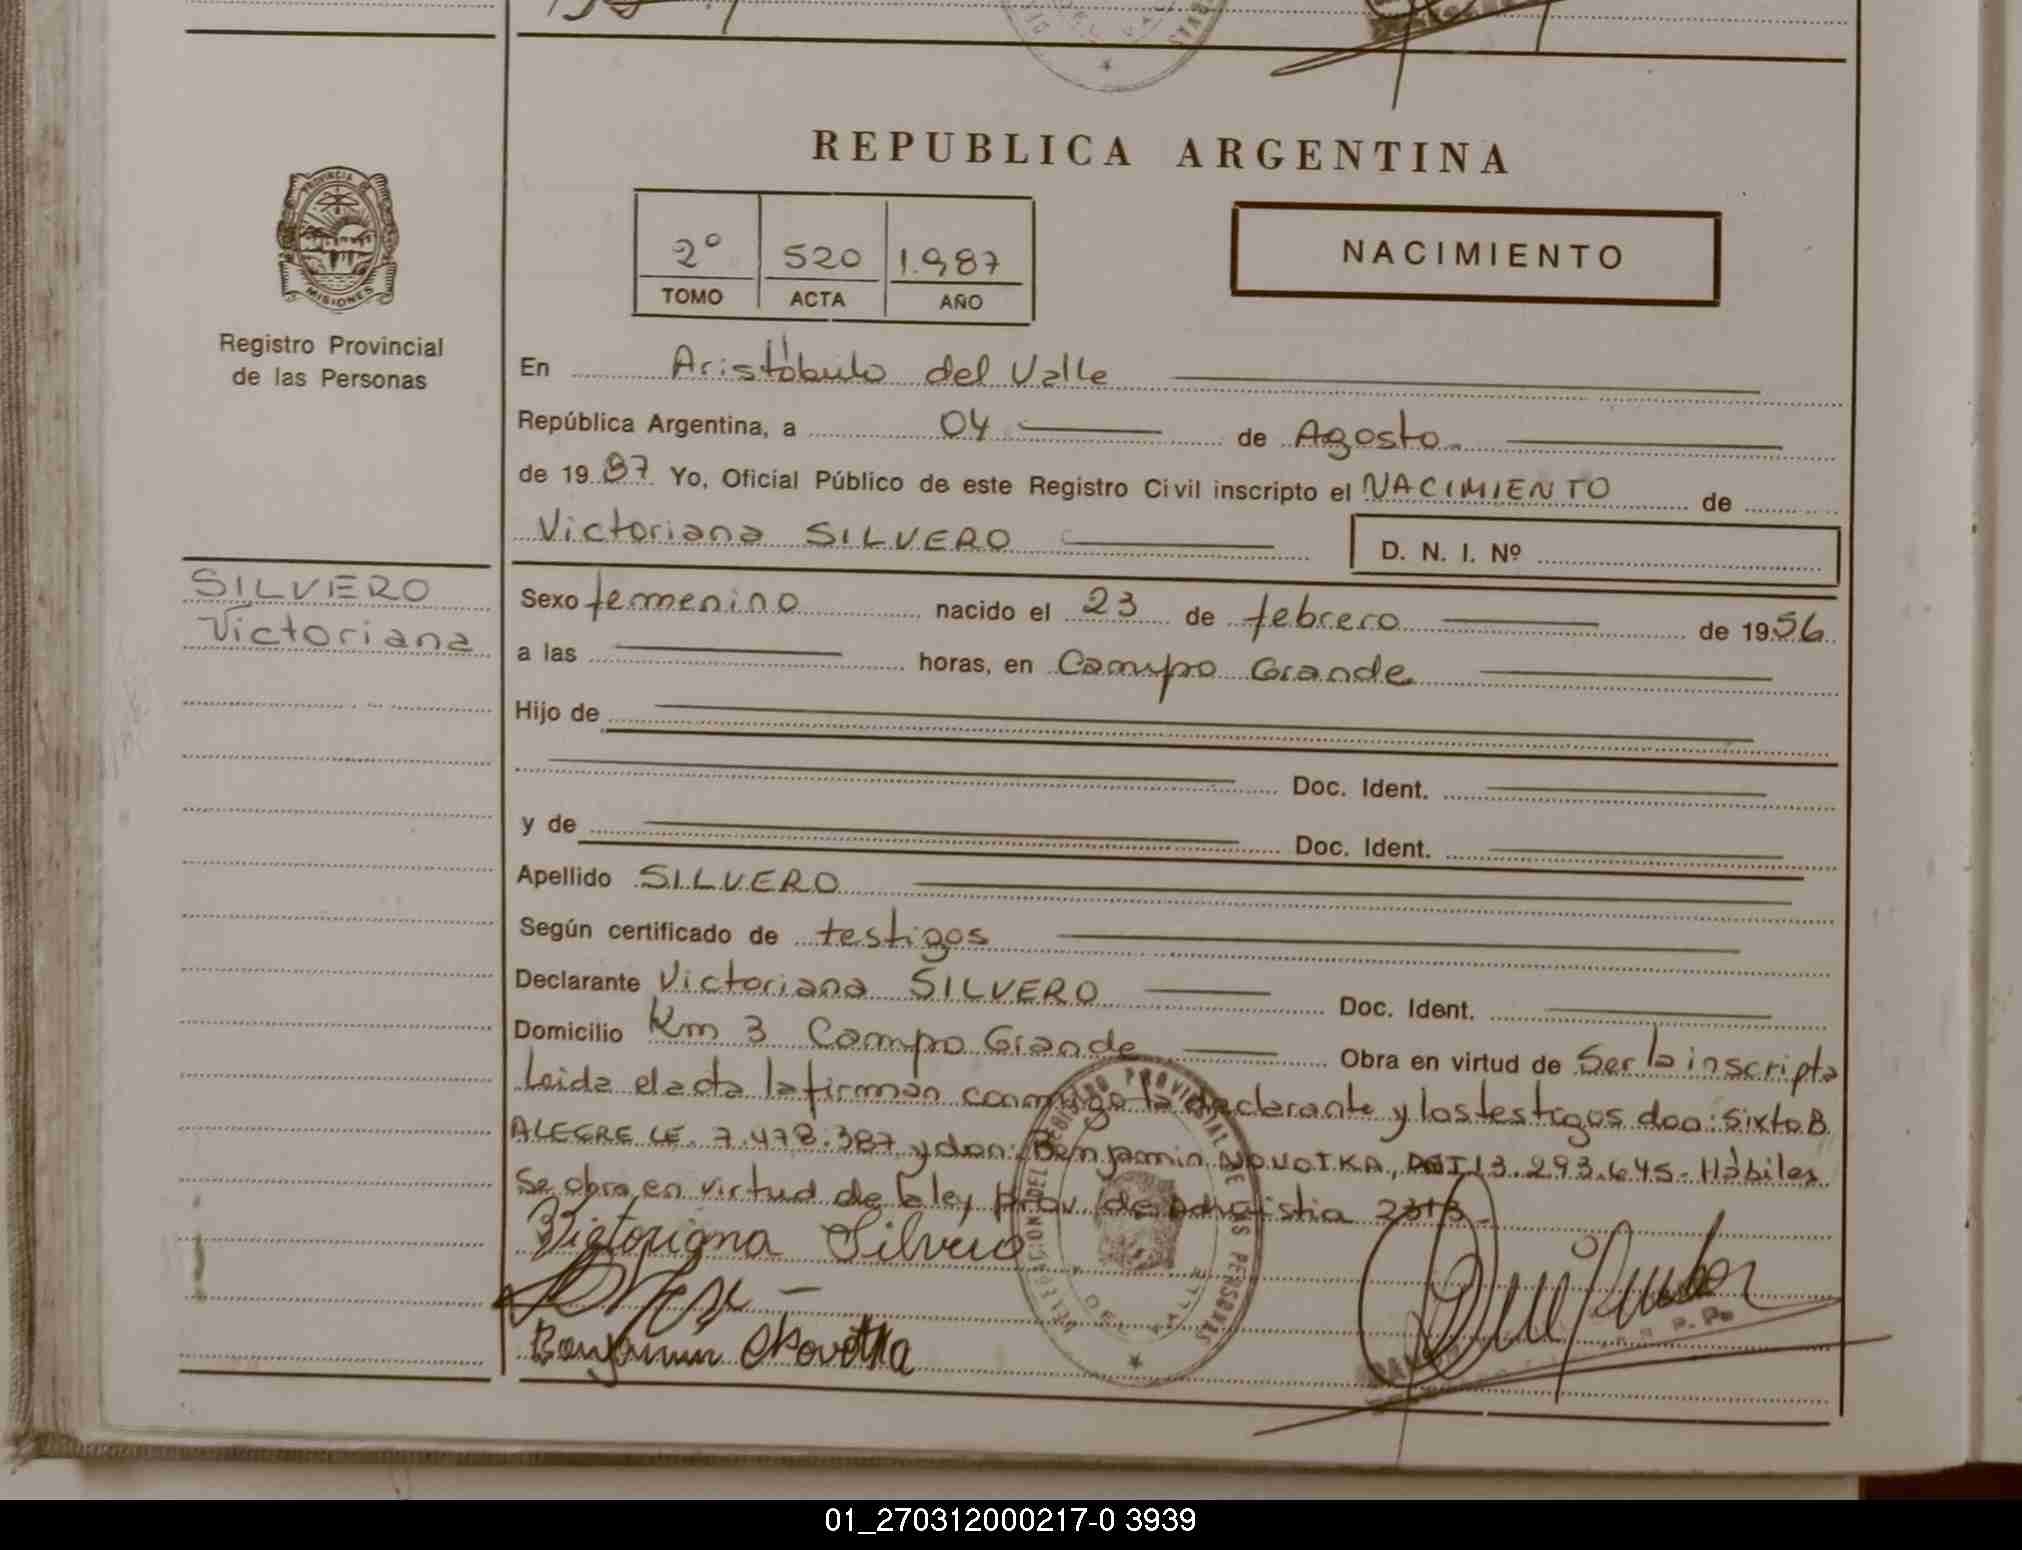 REPUBLICA ARGENTINA
PROVINCIA DE
MISIONES
Registro Provincial
de las Personas
2º 520 1.987
TOMO ACTA AÑO
NACIMIENTO
En Aristóbulo del Valle
República Argentina, a 04 de Agosto
de 19 87 Yo, Oficial Público de este Registro Civil inscripto el NACIMIENTO de
Victoriana SILVERO D. N. I. Nº
SILVERO
Victoriana
Sexo femenino nacido el 23 de febrero de 19 56
a las horas, en Campo Grande
Hijo de
Doc. Ident.
y de Doc. Ident.
Apellido SILVERO
Según certificado de testigos
Declarante Victoriana SILVERO Doc. Ident.
Domicilio Km 3 Campo Grande Obra en virtud de Ser la inscripta
Leida el acta la firman conmigo la declarante y los testigos don: Sixto B.
ALEGRE LE. 7.478.387 y don: Benjamin NOVOTKA, 13.293.645 - Hàbiles
Se obra en virtud de la ley prov. de amnistia 2313.
Victoriana Silvero
Benjamin Novotka
REGISTRO PROVINCIAL DE LAS PERSONAS
DELEGACION DEL
DEL VALLE
01_270312000217-0 3939